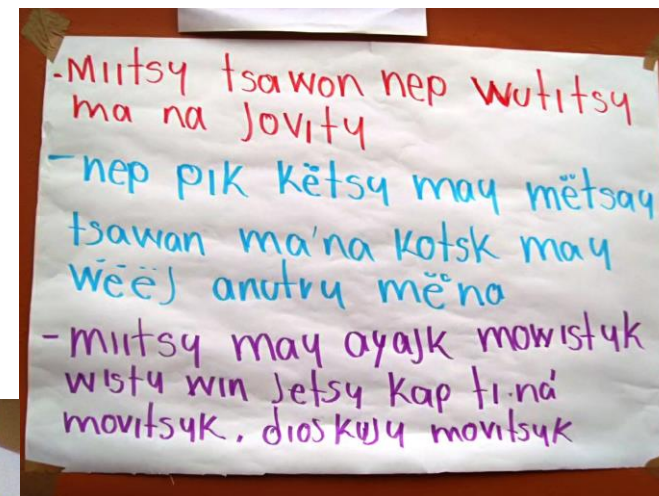 -Miitsy tsawon nep wutitsy
ma na Jovity
-nep pik këtsy may mëtsay
tsawan ma'na kotsk may
wëëj anutry më'na
-miitsy may ayajk mowistyk
wisty win Jetsy kap ti.ná
movitsyk. dios kujy movitsyk